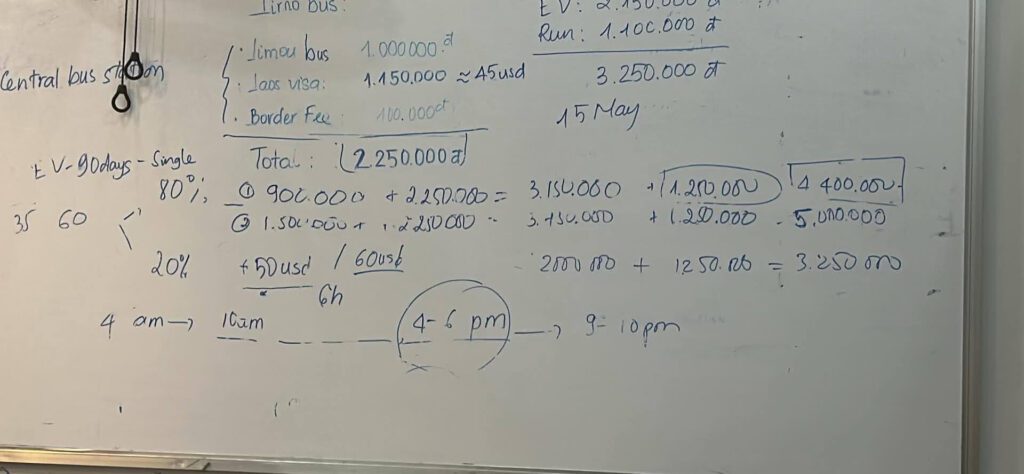 Limo bus:
EV: 2.150.000 đ
Run: 1.100.000 đ
3.250.000 đ
15 May
Central bus station
. Limou bus 1.000.000 đ
. Laos visa: 1.150.000 ≈ 45usd
. Border Fee: 100.000đ
Total: 2.250.000 đ
EV-90days-Single
80%: ① 900.000 + 2.250.000 = 3.150.000 + 1.250.000 4 400.000
35 60 ② 1.500.000 + 2250000 = 3.750.000 + 1.250.000 = 5.000.000
20% +50usd / 60usd 2000 000 + 1250.000 = 3.250 000
6h
4 am → 10am 4-6 pm → 9-10pm